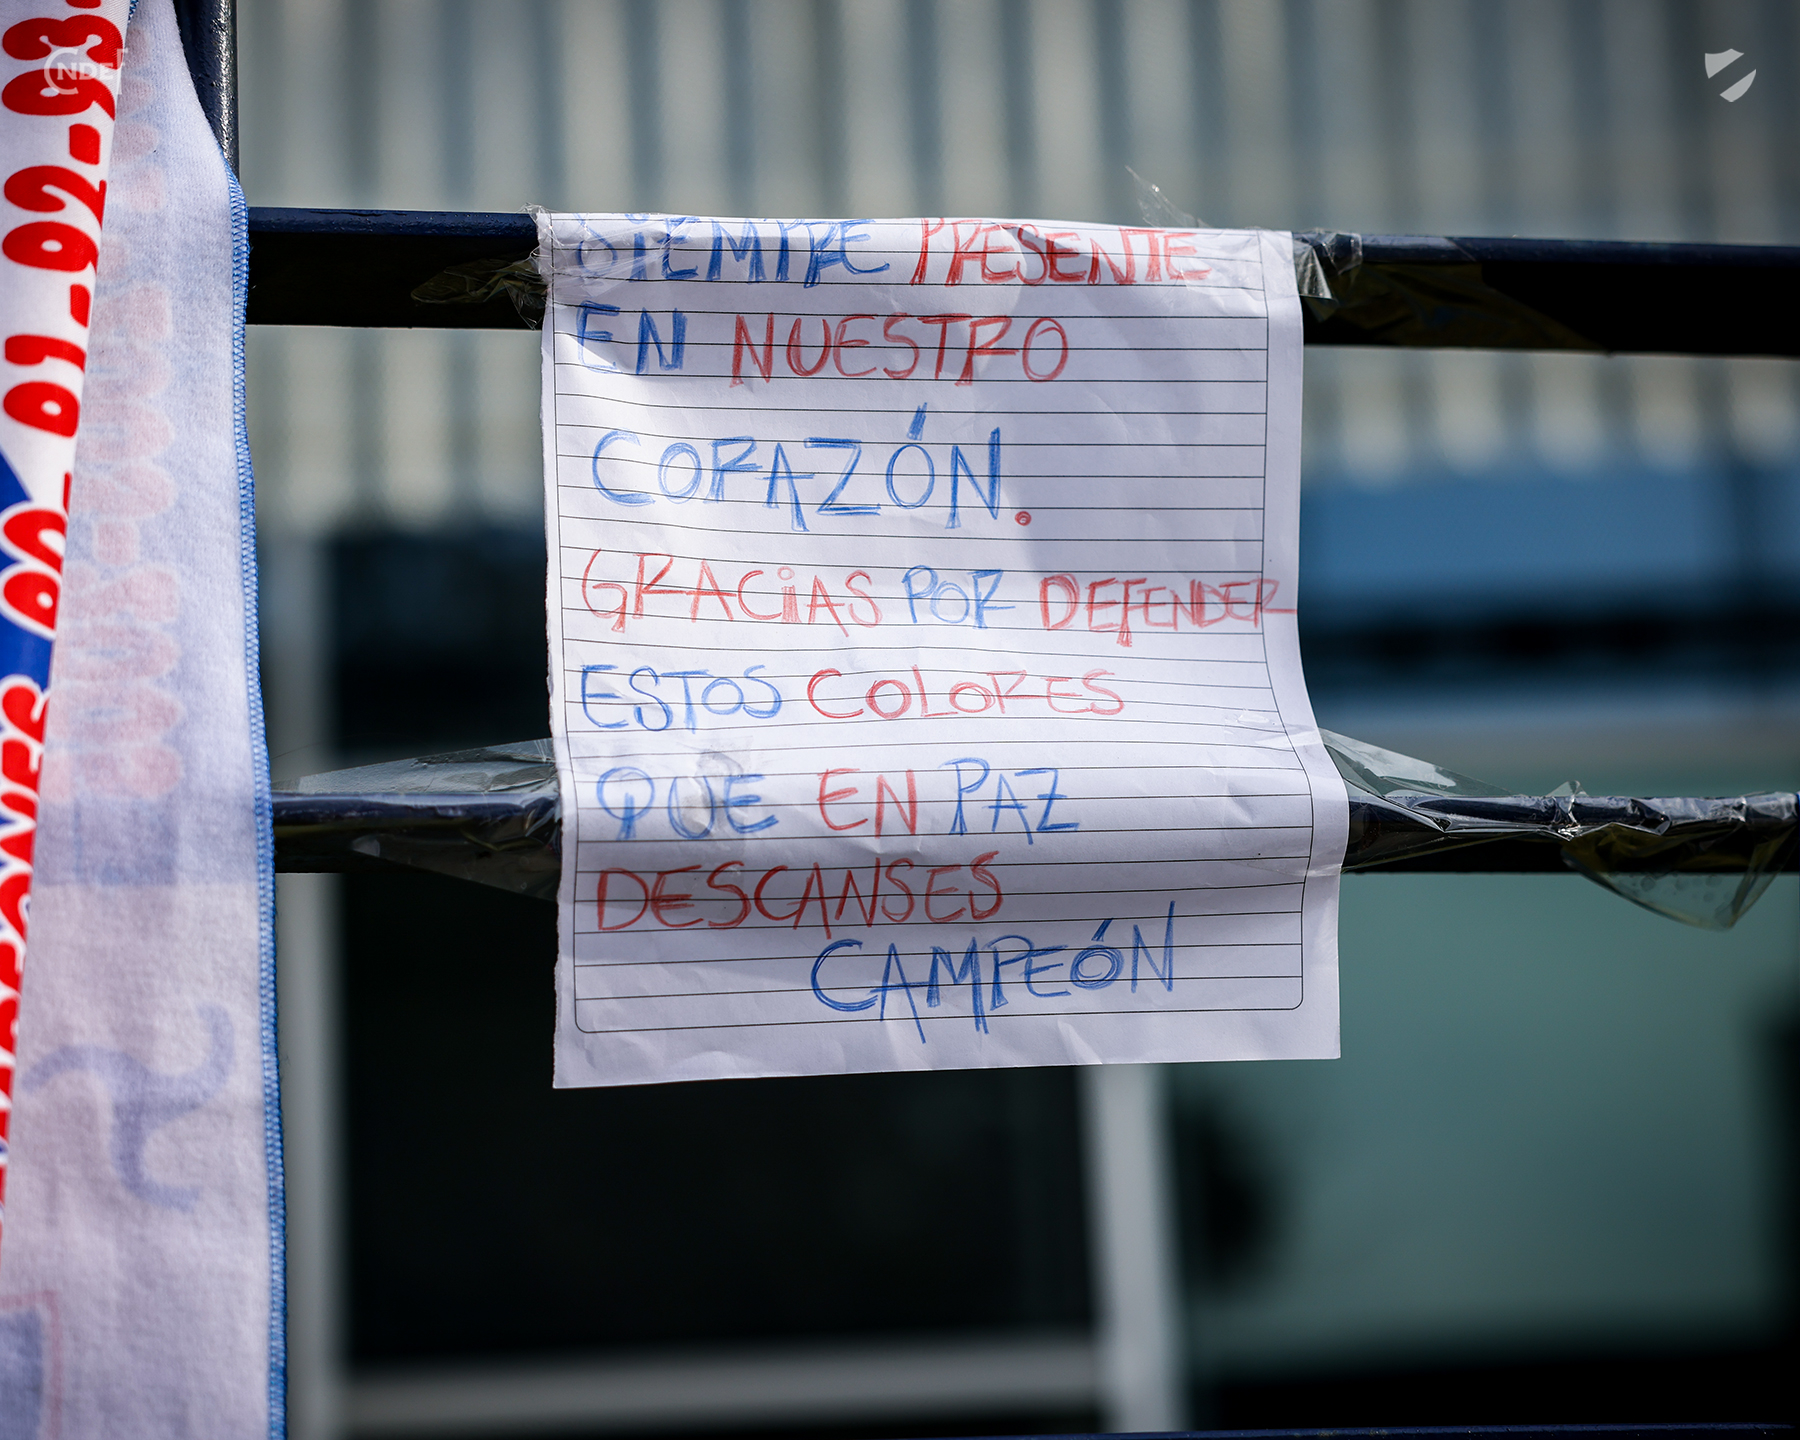 SIEMPRE PRESENTE
EN NUESTRO
CORAZÓN.
GRACiAS POR DEFENDER
ESTOS COLORES
QUE EN PAZ
DESCANSES
CAMPEÓN
91-92-93
NDE